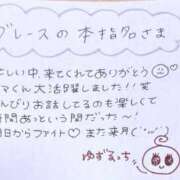 グレースの本指名さま
しい中、来てくれてありがとう
マくん大活躍しました!!笑
んびりお話してるのも楽しくて
時間あっという間だった〜!
日からファイト♡また来月(
ゆずまっち